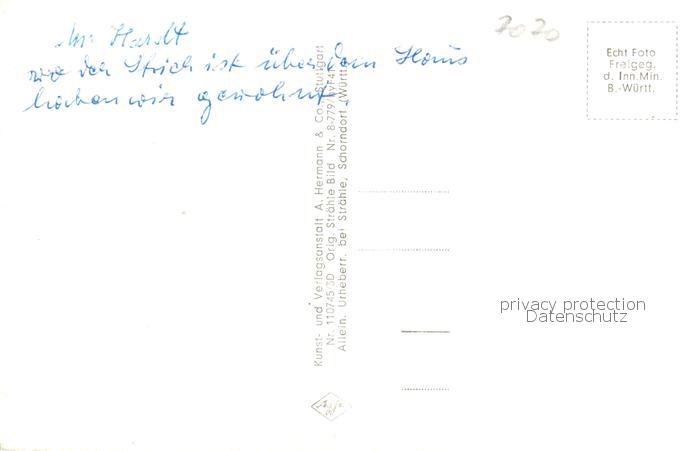 wo der Strich ist über dem Haus
haben wir gewohnt.
2020
Echt Foto
Freigeg.
d. Inn.Min.
B.-Württ.
Kunst- und Verlagsanstalt A. Hermann & Co., Stuttgart
Nr. 110745/3D Orig. Strähle Bild Nr. 8-779
Allein. Urheberr. bei Strähle, Schorndorf /Württ.
privacy protection
Datenschutz
Agfa